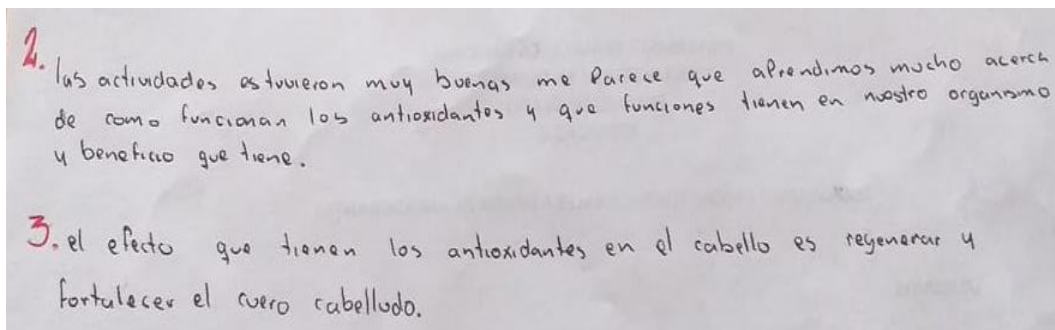 2. las actividades estuvieron muy buenas me Parece que aPrendimos mucho acerca
de como funcionan los antioxidantes y que funciones tienen en nuestro organismo
y beneficio que tiene.
3. el efecto que tienen los antioxidantes en el cabello es regenerar y
fortalecer el cuero cabelludo.